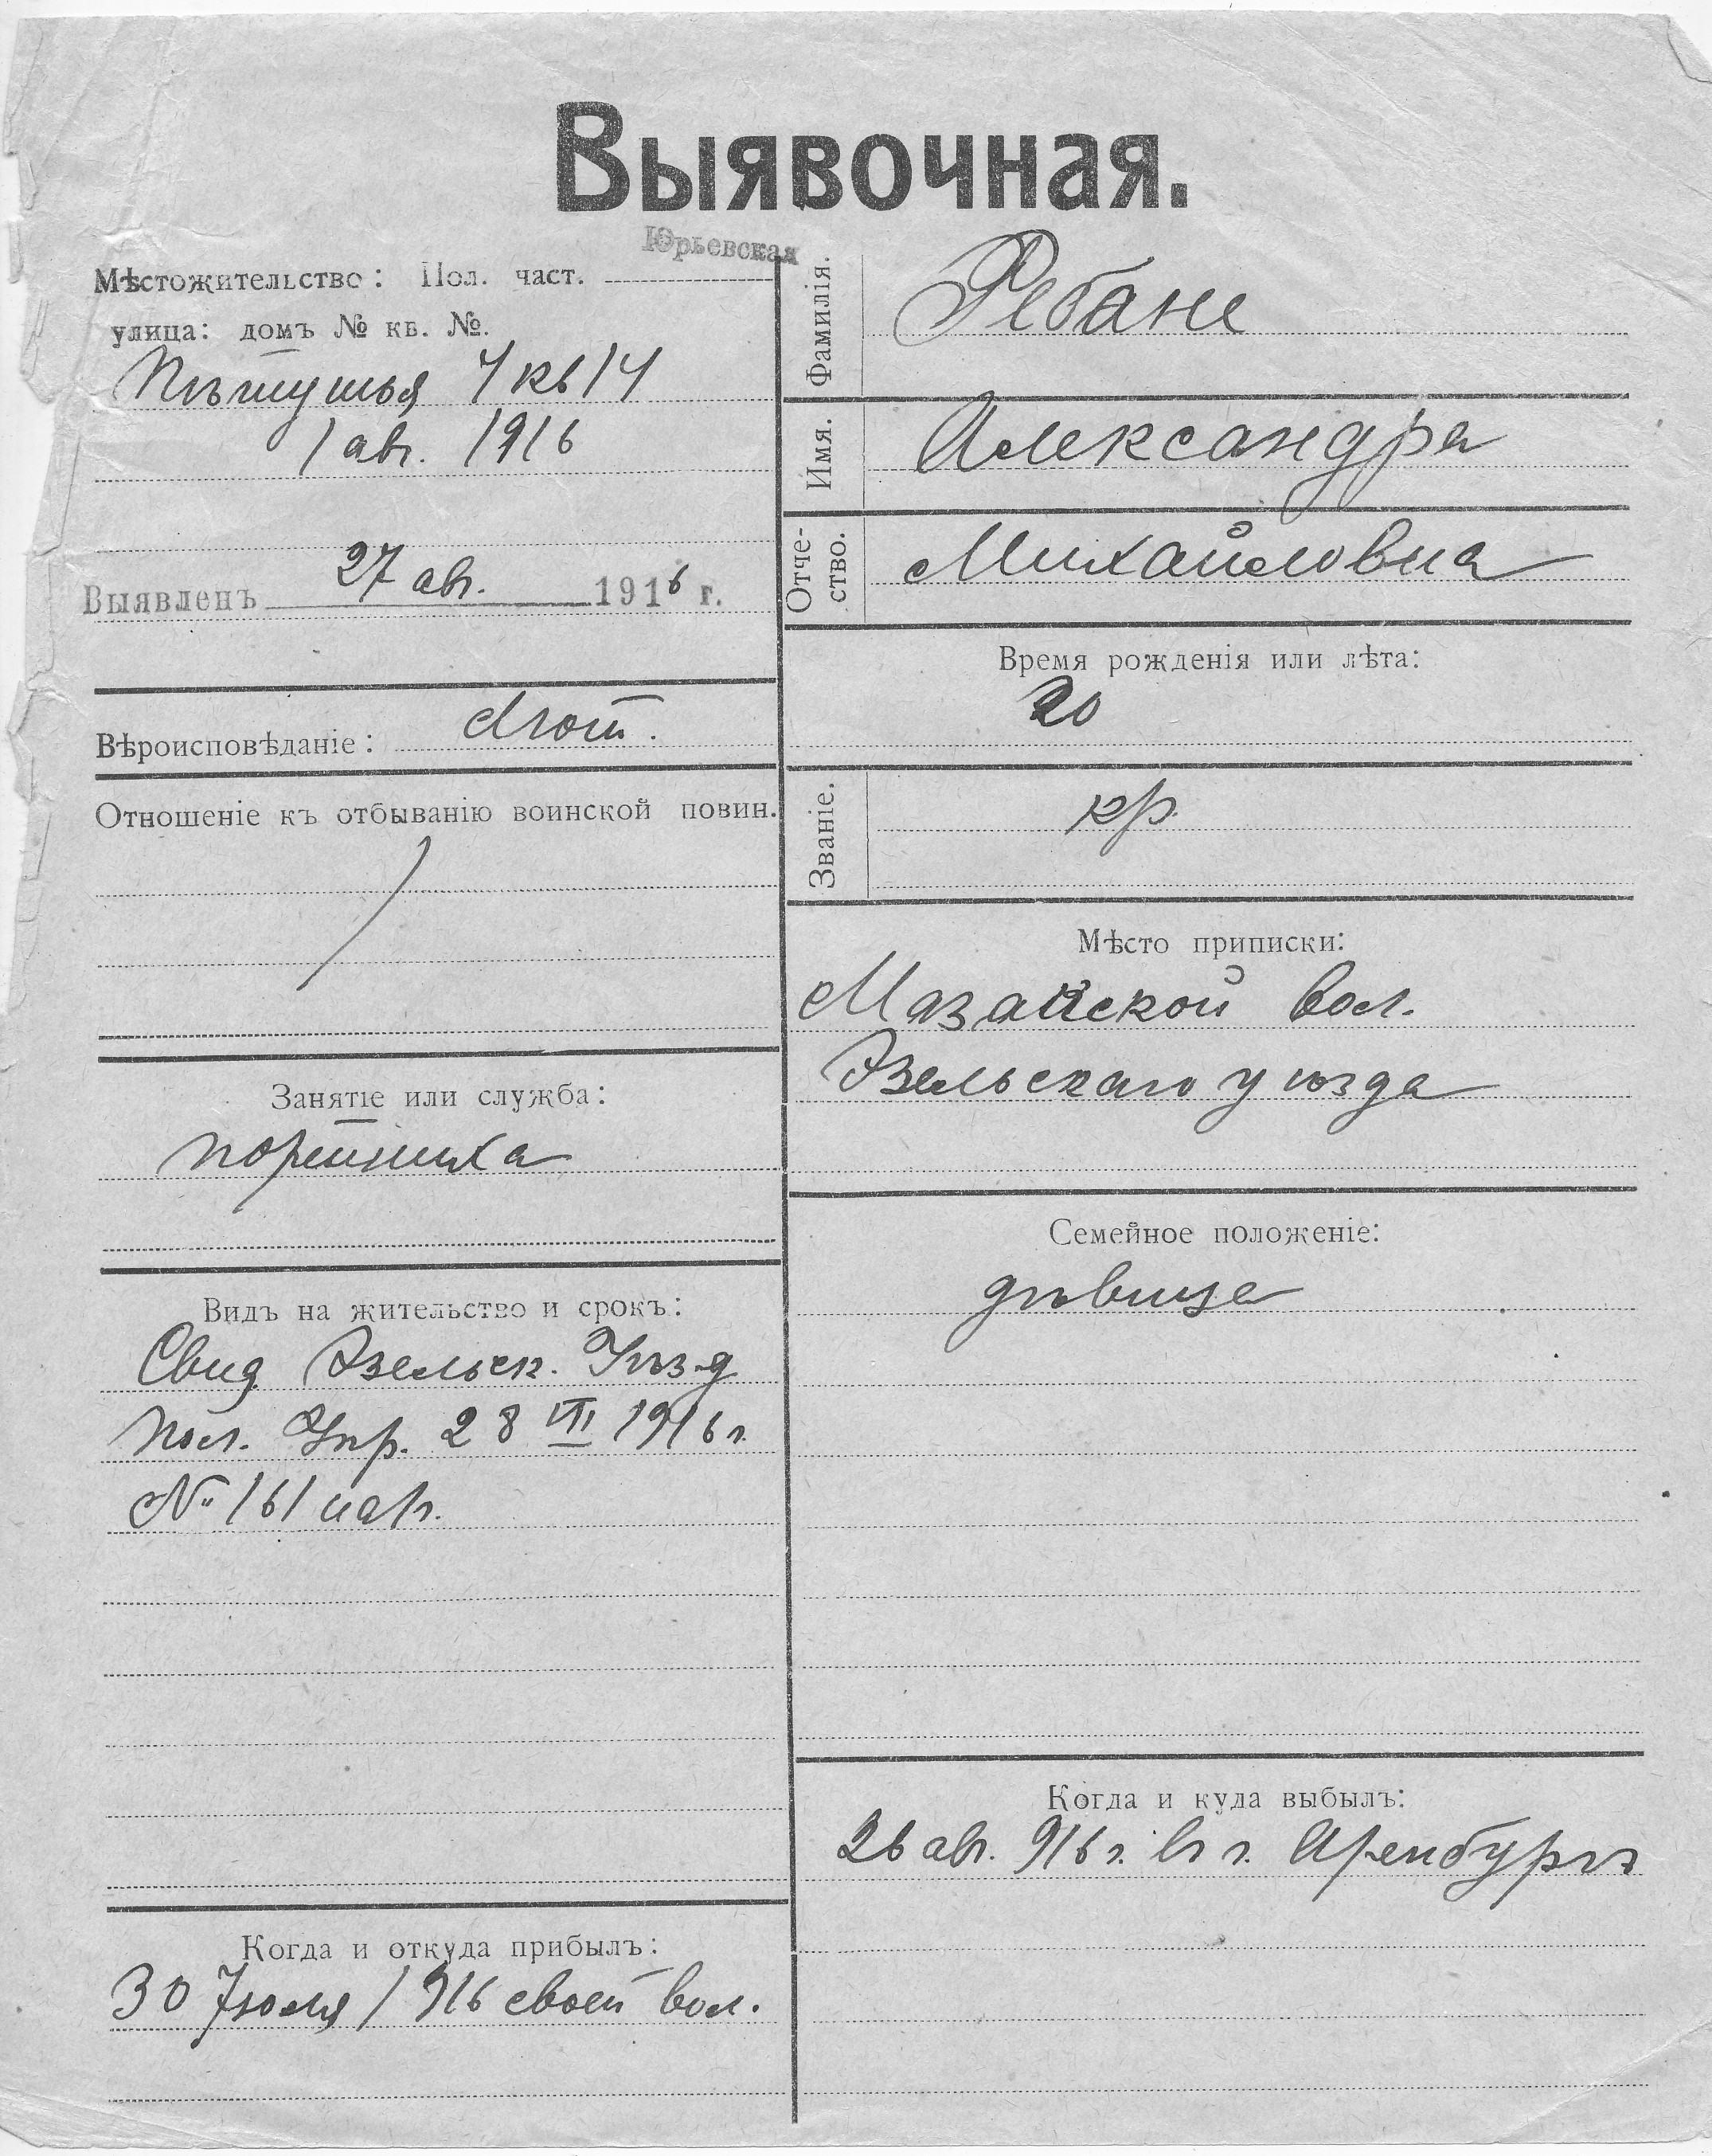 Выявочная.
Юрьевская
Мѣстожительство: Пол. част.
улица: домъ № кв. №.
Пѣтушья 4 кв 14
1 авг. 1916
Выявленъ 27 авг. 1916 г.
Вѣроисповѣданіе: Лют.
Отношеніе къ отбыванію воинской повин.
Занятіе или служба:
портниха
Видъ на жительство и срокъ:
Свид. Эзельск. Уѣзд
Пол. Упр. 28 VII 1916 г.
№ 161
Когда и откуда прибылъ:
30 Іюля 1916 своей вол.
Фамилія. Ребане
Имя. Александра
Отче-
ство. Михайловна
Время рожденія или лѣта:
20
Званіе. кр.
Мѣсто приписки:
Мазайской вол.
Эзельскаго уѣзда
Семейное положеніе:
дѣвица
Когда и куда выбылъ:
26 авг. 916 г. въ г. Аренбургъ